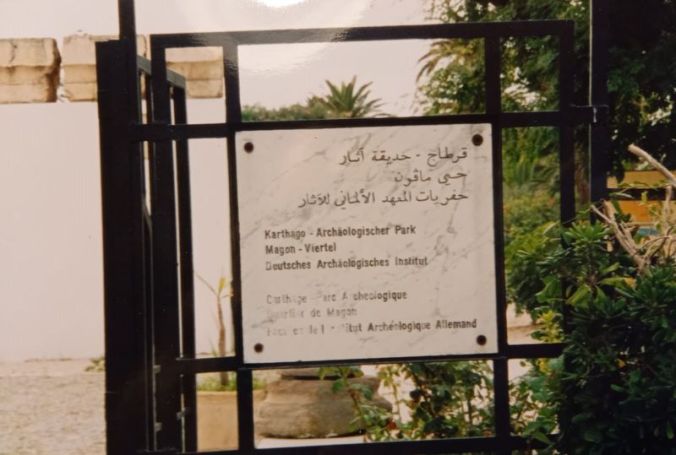 قرطاج - حديقة آثار
حي ماڤون
حفريات المعهد الألماني للآثار
Karthago - Archäologischer Park
Magon - Viertel
Deutsches Archäologisches Institut
Carthage - Parc Archéologique
Quartier de Magon
de l'Institut Archéologique Allemand